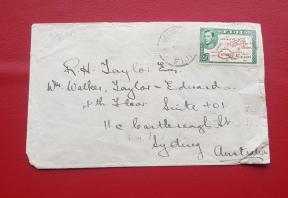 FIJI
R.H. Taylor Esq.
Wm Walker, Taylor - Edwards
4th Floor Suite 401
11c Castlereagh St
Sydney
Australia